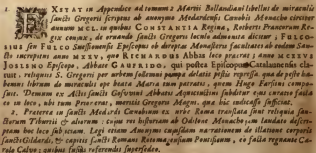 EXSTAT in Appendice ad tomum 2 Martii Bollandiani libellus de miraculis
sancti Gregorii scriptus ab anonymo Medardensi Canobii Monacho circiter
annum MCL. in quibus CONSTANTIA Regina, Roberti Francorum Re-
gis conjux, de oranda sancti Gregorii loculo admonenda dicitur; FULCO-
seu FULCO Suessionensis Episcopus ob direptas Monasterii facultates ob eamdem San-
cto suscriptus anno MXIV, quo RICHARDUS Abbas loco praerat; anno MCXIVI
JOSLENO Episcopo, Abbate GAUFRIDO, qui postea Episcopus Catalaunensis cla-
ruit, reliquias S. Gregorii per urbem solemni pompa delatis pestis repressa. qua de peste ha-
betur librum de miraculis ope beata Maria tum patratis, quem Hugo Farsitus compo-
suit. Demum ex Actis sancti Gosvini Abbatis Aquicinctini subditur ejus curatio facta
eo in loco, ubi tum Prior erat, meritis Gregorii Magni, qua hic indicasse sufficiat.
2. Praterea in sancti Medardi Coenobium ex urbe Roma translata sunt reliquia san-
ctorum Tiburtii & aliorum: cujus rei historiam ab Odilone Monacho jam laudato descri-
ptam hoc loco subjiciam. Legi etiam Anonymi cujusdam narrationem de illatione corporis
sancti Gildardi, & capitis sancti Romani Rotomagensium Pontificum, eo facta regnante Ca-
rolo Calvo; quibus fusius referendis supersedeo.